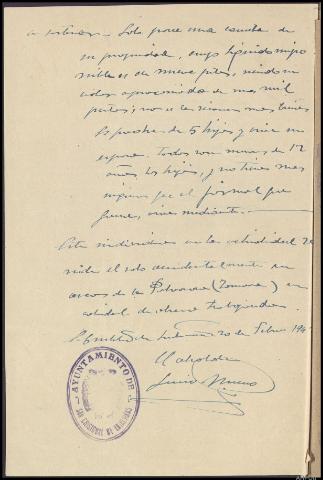 Solo posee una casita de
su propiedad, cuyo líquido impo
nible es de nueve ptas, siendo su
valor aproximado de mas mil
pesetas; no se le conocen mas bienes
Es padre de 5 hijos y vive su
esposa. Todos son menos de 12
años los hijos, y no tiene mas
ingresos que el jornal que
gane,
Este individuo en la actualidad re
side el solo accidentalmente en
de la Polvorosa (Zamora) en
calidad de obrero trabajador.
de Febro 194
El alcalde
AYUNTAMIENTO DE
SAN CRISTOBAL DE